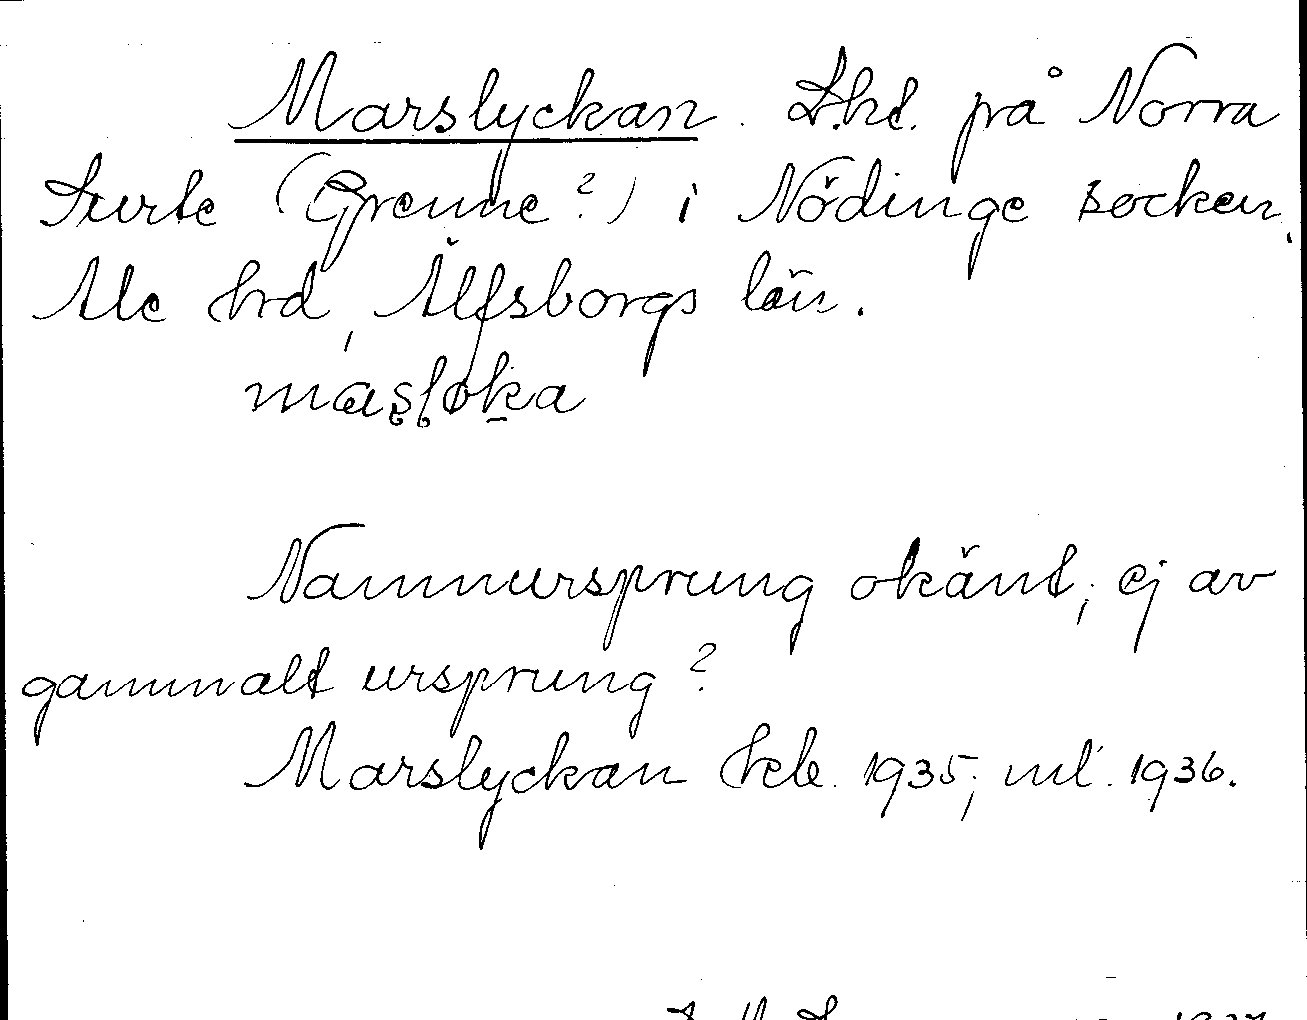 Marslyckan. L.hl. på Norra
Surte (Grenne?) i Nödinge socken,
Ale hrd, Älfsborgs län.
Namnursprung okänt; ej av
gammalt ursprung?
Marslyckan hkb. 1935; ml. 1936.